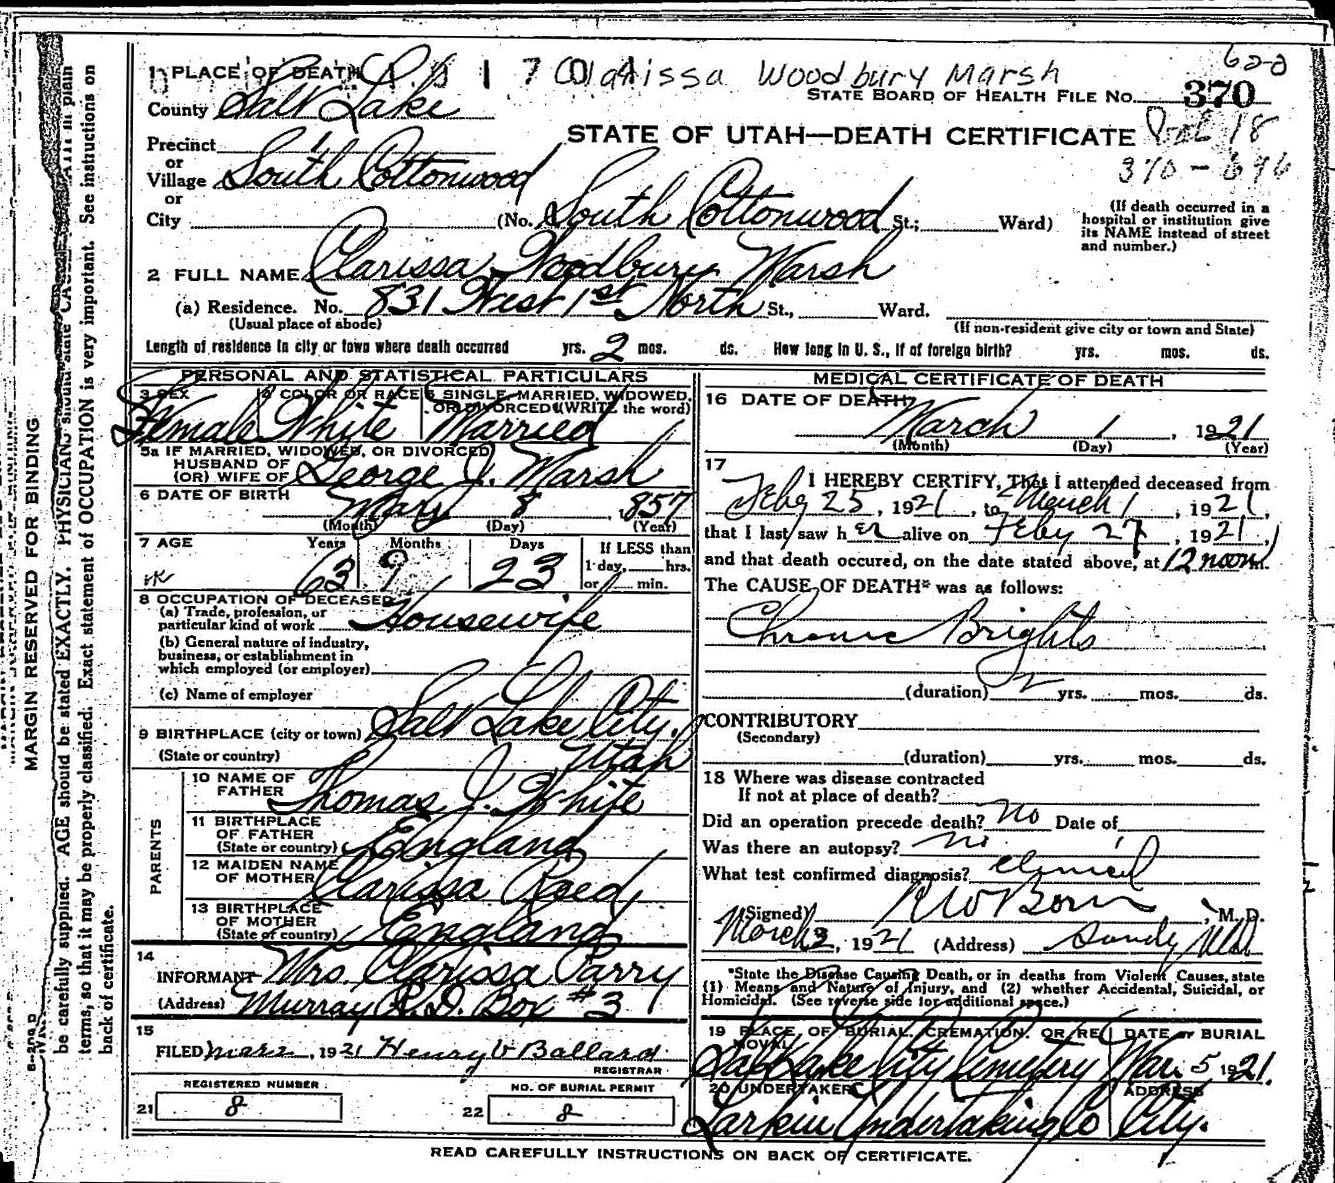 Clarissa Woodbury Marsh
622
1 PLACE OF DEATH
STATE BOARD OF HEALTH FILE No. 370
County Salt Lake
STATE OF UTAH—DEATH CERTIFICATE
Precinct 1
370 - 696
or
Village South Cottonwood
or
City (No. South Cottonwood St.; Ward)
(If death occurred in a hospital or institution give its NAME instead of street and number.)
2 FULL NAME Clarissa Woodbury Marsh
(a) Residence. No. 831 West 1st North St., Ward.
(Usual place of abode) (If non-resident give city or town and State)
Length of residence in city or town where death occurred yrs. 2 mos. ds. How long in U. S., if of foreign birth? yrs. mos. ds.
PERSONAL AND STATISTICAL PARTICULARS
3 SEX 4 COLOR OR RACE 5 SINGLE, MARRIED, WIDOWED,
OR DIVORCED (WRITE the word)
Female White Married
5a IF MARRIED, WIDOWED, OR DIVORCED
HUSBAND OF
(OR) WIFE OF George J. Marsh
6 DATE OF BIRTH
May 8 , 857
(Month) (Day) (Year)
7 AGE Years Months Days If LESS than
1 day, hrs.
or min.
63 9 23
8 OCCUPATION OF DECEASED
(a) Trade, profession, or
particular kind of work Housewife
(b) General nature of industry,
business, or establishment in
which employed (or employer)
(c) Name of employer
9 BIRTHPLACE (city or town) Salt Lake City.
(State or country) Utah
PARENTS
10 NAME OF
FATHER Thomas J. White
11 BIRTHPLACE
OF FATHER
(State or country) England
12 MAIDEN NAME
OF MOTHER Clarissa Reed
13 BIRTHPLACE
OF MOTHER
(State or country) England
14
INFORMANT Mrs. Clarissa Parry
(Address) Murray R. D. Box #3
15
FILED Mar 2, 1921 Henry V Ballard
REGISTRAR
REGISTERED NUMBER NO. OF BURIAL PERMIT
21 8 22 8
MEDICAL CERTIFICATE OF DEATH
16 DATE OF DEATH
March 1 , 1921
(Month) (Day) (Year)
17
I HEREBY CERTIFY, That I attended deceased from
Feby 25, 1921, to March 1, 1921,
that I last saw her alive on Feby 27, 1921,
and that death occured, on the date stated above, at 12 noon m.
The CAUSE OF DEATH* was as follows:
Chronic Brights
(duration) 2 yrs. mos. ds.
CONTRIBUTORY
(Secondary)
(duration) yrs. mos. ds.
18 Where was disease contracted
If not at place of death?
Did an operation precede death? No Date of
Was there an autopsy? No
What test confirmed diagnosis? Clinical
(Signed) , M. D.
March 2, 1921 (Address) Sandy Utah
*State the Disease Causing Death, or in deaths from Violent Causes, state
(1) Means and Nature of Injury, and (2) whether Accidental, Suicidal, or
Homicidal. (See reverse side for additional space.)
19 PLACE OF BURIAL, CREMATION, OR REMOVAL DATE OF BURIAL
Salt Lake City Cemetery Mar. 5 1921.
20 UNDERTAKER ADDRESS
Larkin Undertaking Co City.
READ CAREFULLY INSTRUCTIONS ON BACK OF CERTIFICATE.
MARGIN RESERVED FOR BINDING
be carefully supplied. AGE should be stated EXACTLY. PHYSICIANS should state CAUSE in plain
terms, so that it may be properly classified. Exact statement of OCCUPATION is very important. See instructions on
back of certificate.